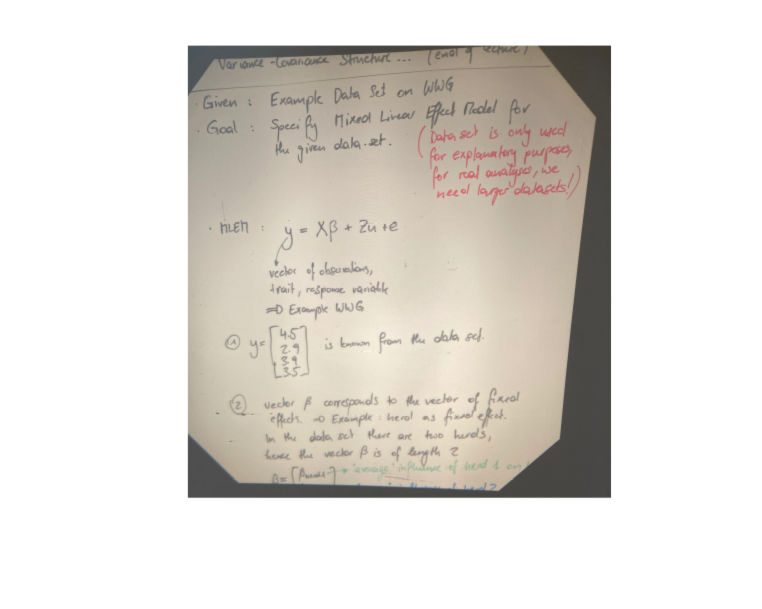 Variance-Covariance Structure ... (end of lecture)
· Given : Example Data Set on WWG
· Goal : Specify Mixed Linear Effect Model for
the given data set.
(Data set is only used
for explanatory purposes,
for real analyses, we
need larger datasets!)
· MLEM : y = Xβ + Zu + e
vector of observations,
trait, response variable
=D Example WWG
① y = [4.5
2.9
3.9
3.5] is known from the data set.
② vector β corresponds to the vector of fixed
effects. -D Example : herd as fixed effect.
In the data set there are two herds,
hence the vector β is of length 2
β = [ → "average" influence of herd 1 on
of herd 2